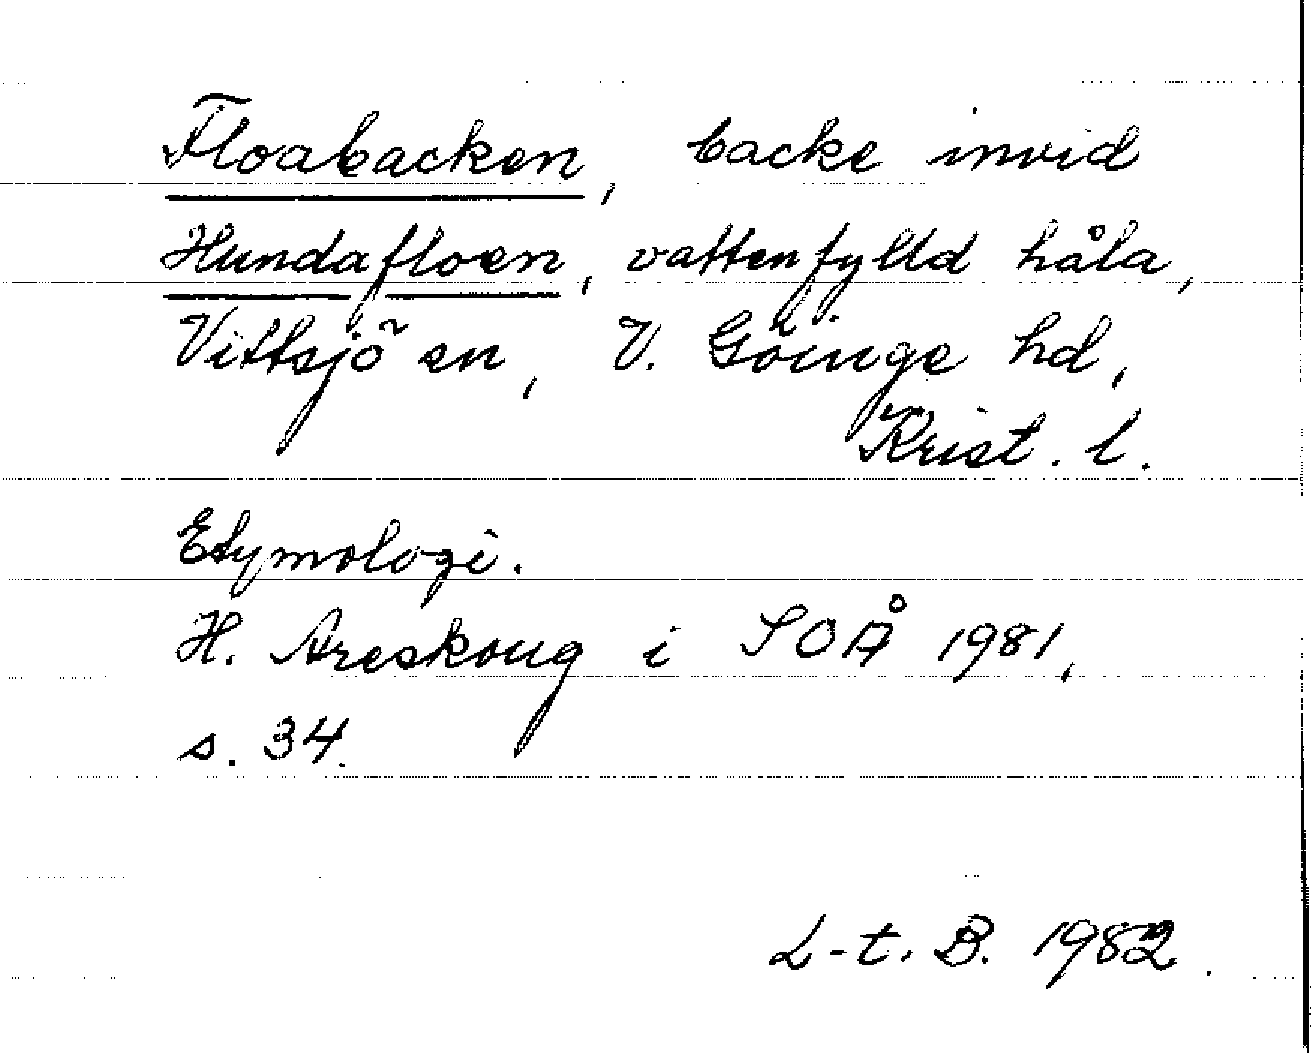 Floabacken, backe invid
Hundafloen, vattenfylld håla,
Vittsjö sn, V. Göinge hd,
Krist. l.
Etymologi.
H. Areskoug i SOÅ 1981,
s. 34.
L-t. B. 1982.